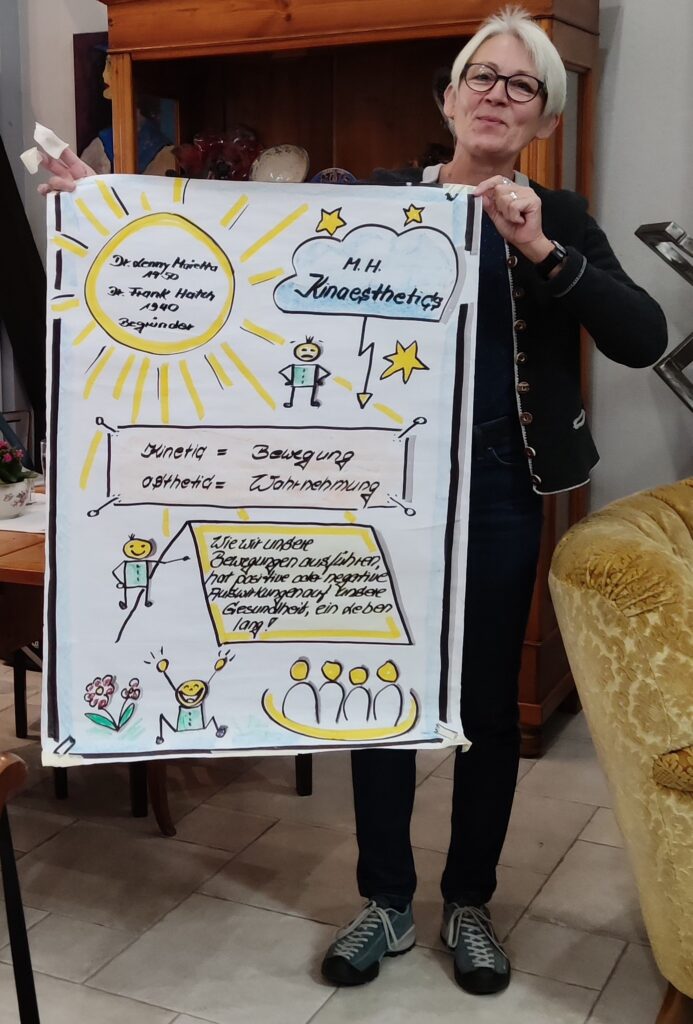 Dr. Lenny Maietta
1950
Dr. Frank Hatch
1940
Begründer
M. H.
Kinaesthetics
Kinetiq = Bewegung
asthetiq = Wahrnehmung
Wie wir unsere
Bewegungen ausführen,
hat positive oder negative
Auswirkungen auf unsere
Gesundheit, ein Leben
lang!